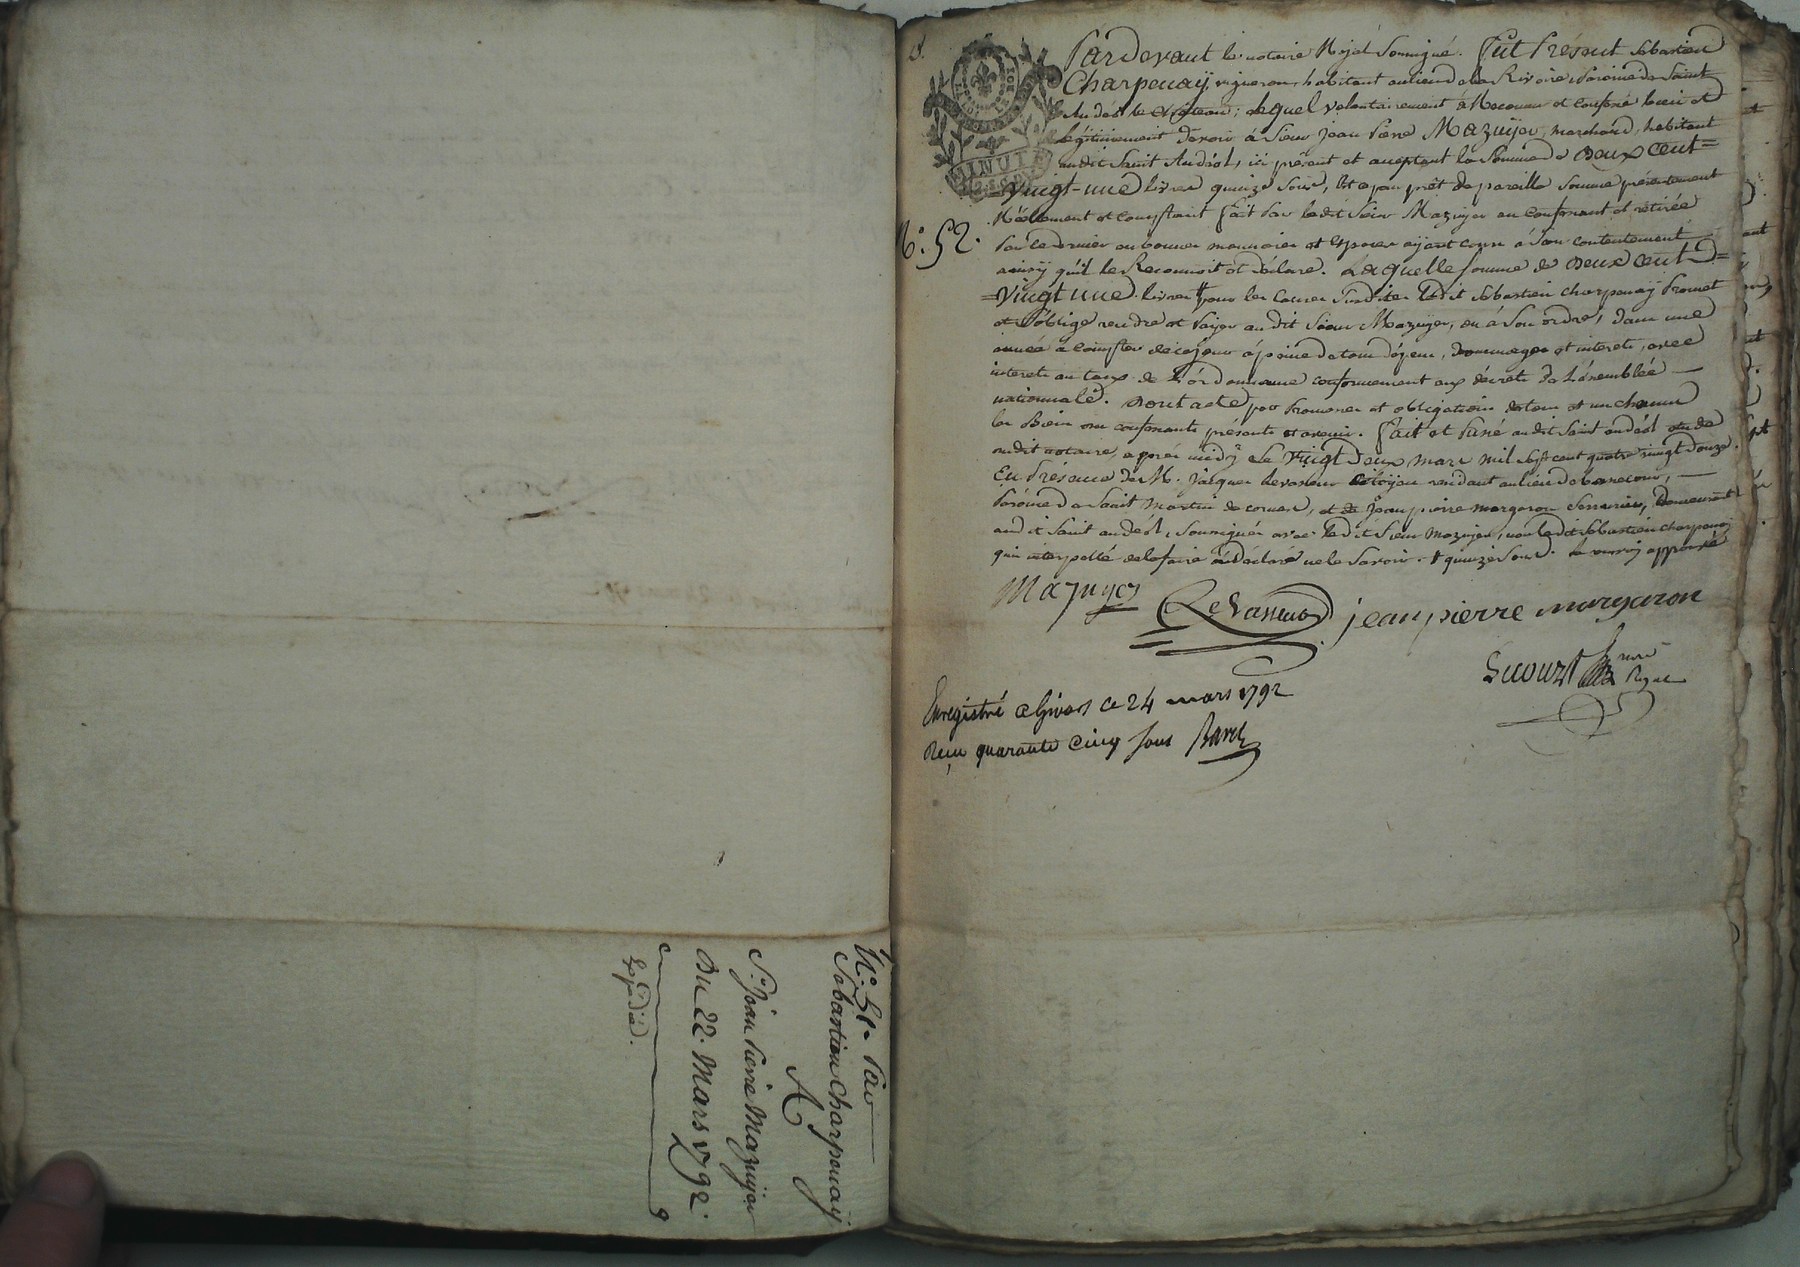 N.° 51. Par
Sebastien Charpenaÿ
A
S.r Jean Pierre Mazuyer
Du 22. Mars 1792.
Expedié.
Pardevant le notaire Royal Soussigné. Fut Présent Sebastien
Charpenaÿ, vigneron, habitant au lieu de la Rivoire, Paroisse de Saint
Andéol le Chateau; lequel volontairement à Reconnu et confessé bien et
légitimement devoir à Sieur Jean Pierre Mazuÿer, marchand, habitant
audit Saint Andéol, ici présent et acceptant la Somme de Deux cent
vingt-une livres quinze sous, pret de pareille somme présentement
Réellement et comptant fait par ledit Sieur Mazuyer au confessant et retirée
par ce dernier en bonnes monnoies et Especes aÿant cours à Son contentement
ainsÿ qu'il le Reconnoit et déclare. Laquelle somme de Deux cent
N.° 52.
vingt une livres † pour les causes Susdites ledit Sebastien Charpenaÿ Promet
et s'oblige rendre et Païer audit Sieur Mazuyer, ou à Son ordre, dans une
année à compter de ce jour à peine de tous dépens, dommages et interets, avec
interets au taux de l'ordonnance conformement aux décrets de l'assemblée
nationnale. Dont acte, par Promesses et obligations de tous et un chacun
les Biens du confessant présents et avenir. Fait et Passé audit Saint andéol etude
dudit notaire, après midÿ Le Vingt Deux mars mil sept cent quatre vingt Douze.
En Présence de M. Jacques Levasseur Citoyen residant au lieu de
Paroisse de Saint Martin de cornas, et de Jean pierre margaron Serrurier, Demeurant
audit Saint andéol, Soussignés avec ledit Sieur Mazuyer, non ledit Sebastien charpenaÿ
qui interpellé de le faire à déclaré ne le Savoir. † quinze Sous. approuvé
Mazuyer
LeVasseur jean pierre margaron
no.re Royal
Enregistré a Givors ce 24 mars 1792
Reçu quarante cinq sous
MINUTE